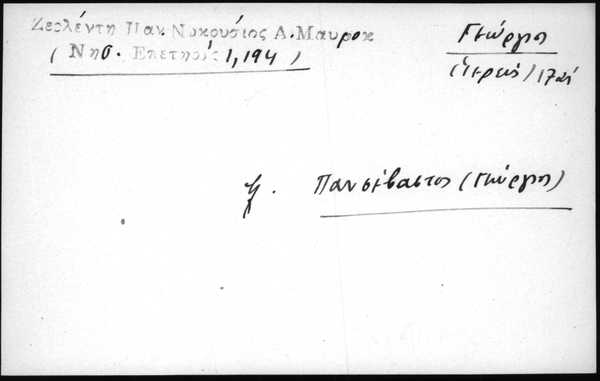 Ζερλέντη Παν. Νυκούσιος Α. Μαυροκ
( Νησ. Επετηρίς 1, 194 )
Γεώργιος
(Ιερεύς) 17
Παν σέβαστος (Γεώργιος)